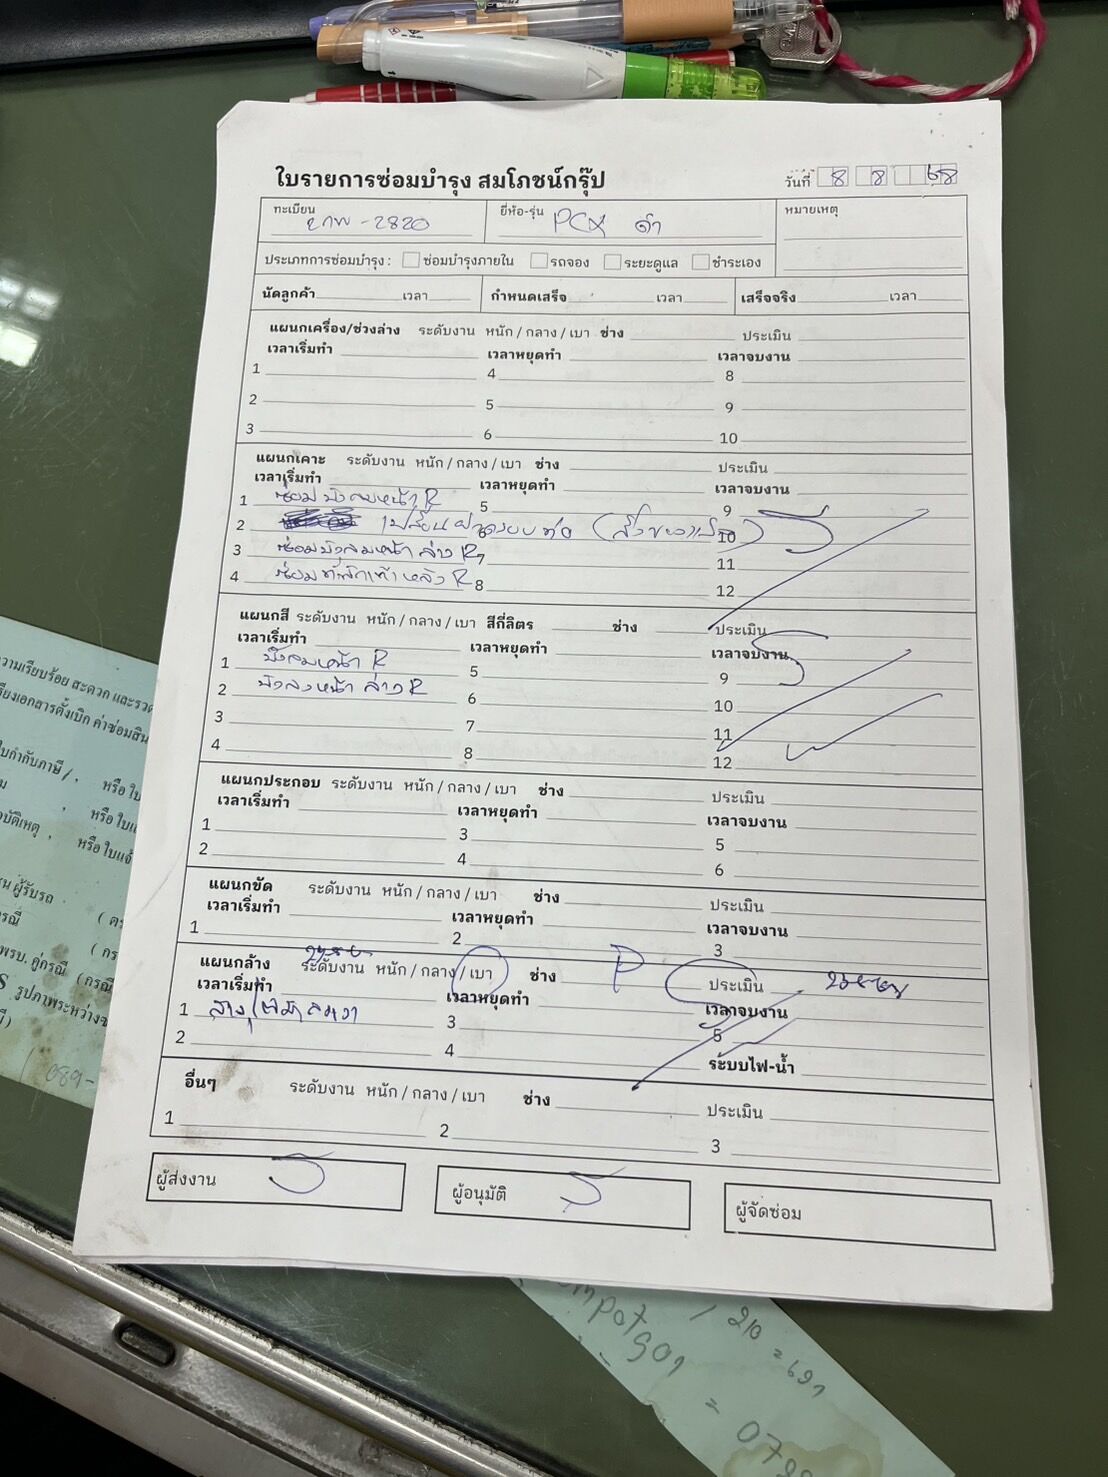 ใบรายการซ่อมบำรุง สมโภชน์กรุ๊ป
วันที่ 8 8 68
ทะเบียน
2กพ-2820
ยี่ห้อ-รุ่น PCX ดำ
หมายเหตุ
ประเภทการซ่อมบำรุง : ซ่อมบำรุงภายใน รถจอง ระยะดูแล ชำระเอง
นัดลูกค้า เวลา กำหนดเสร็จ เวลา เสร็จจริง เวลา
แผนกเครื่อง/ช่วงล่าง ระดับงาน หนัก / กลาง / เบา ช่าง ประเมิน
เวลาเริ่มทำ เวลาหยุดทำ เวลาจบงาน
1 4 8
2 5 9
3 6 10
แผนกเคาะ ระดับงาน หนัก / กลาง / เบา ช่าง ประเมิน
เวลาเริ่มทำ เวลาหยุดทำ เวลาจบงาน
1 ซ่อมบังลมหน้า R 5 9
2 เปลี่ยนฝาครอบท่อ 10
3 ซ่อมบังลมหน้า ล่าง R 7 11
4 ซ่อมที่พักเท้า หลัง R 8 12
แผนกสี ระดับงาน หนัก / กลาง / เบา สีกี่ลิตร ช่าง ประเมิน
เวลาเริ่มทำ เวลาหยุดทำ เวลาจบงาน
1 บังลมหน้า R 5 9
2 บังลมหน้า ล่าง R 6 10
3 7 11
4 8 12
แผนกประกอบ ระดับงาน หนัก / กลาง / เบา ช่าง ประเมิน
เวลาเริ่มทำ เวลาหยุดทำ เวลาจบงาน
1 3 5
2 4 6
แผนกขัด ระดับงาน หนัก / กลาง / เบา ช่าง ประเมิน
เวลาเริ่มทำ เวลาหยุดทำ เวลาจบงาน
1 2 3
แผนกล้าง ระดับงาน หนัก / กลาง / เบา ช่าง P ประเมิน
เวลาเริ่มทำ เวลาหยุดทำ เวลาจบงาน
1 3 5
2 4 ระบบไฟ-น้ำ
อื่นๆ ระดับงาน หนัก / กลาง / เบา ช่าง ประเมิน
1 2 3
ผู้ส่งงาน ผู้อนุมัติ ผู้จัดซ่อม
วามเรียบร้อย สะดวก และรวด
รียงเอกสารตั้งเบิก ค่าซ่อมสิน
ใบกำกับภาษี / . หรือ ใบ
หรือ ใบแจ้
ชน ผู้รับรถ
พรบ. คู่กรณี (กรณี
รูปภาพระหว่างซ
089-
/ 210 = 691